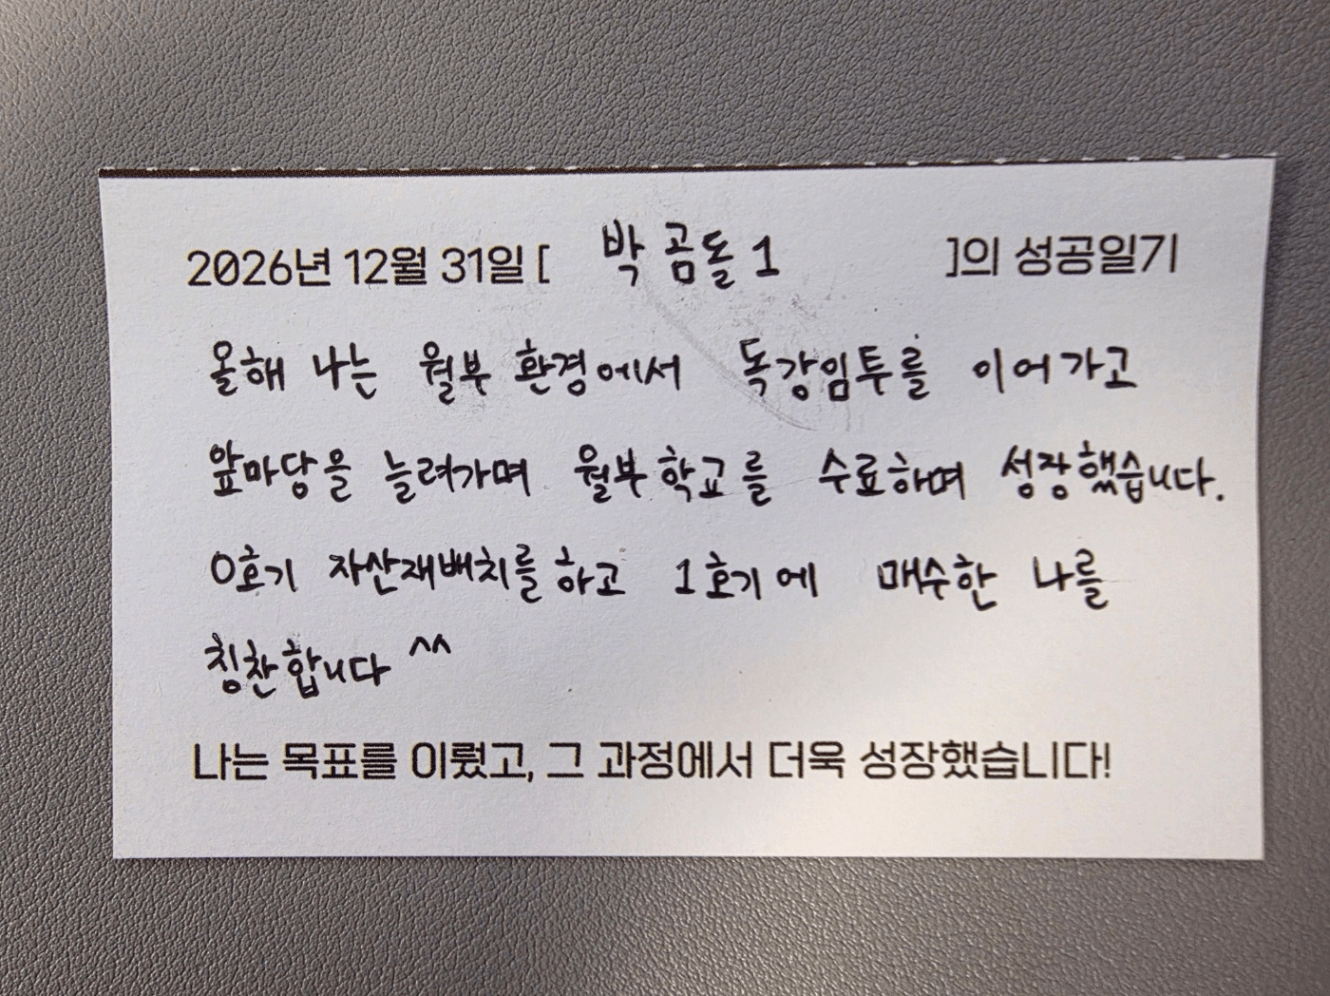 2026년 12월 31일 [ 박곰돌1 ]의 성공일기
올해 나는 월부 환경에서 독강임투를 이어가고
앞마당을 늘려가며 월부학교를 수료하며 성장했습니다.
0호기 자산재배치를 하고 1호기에 매수한 나를
칭찬합니다 ^^
나는 목표를 이뤘고, 그 과정에서 더욱 성장했습니다!